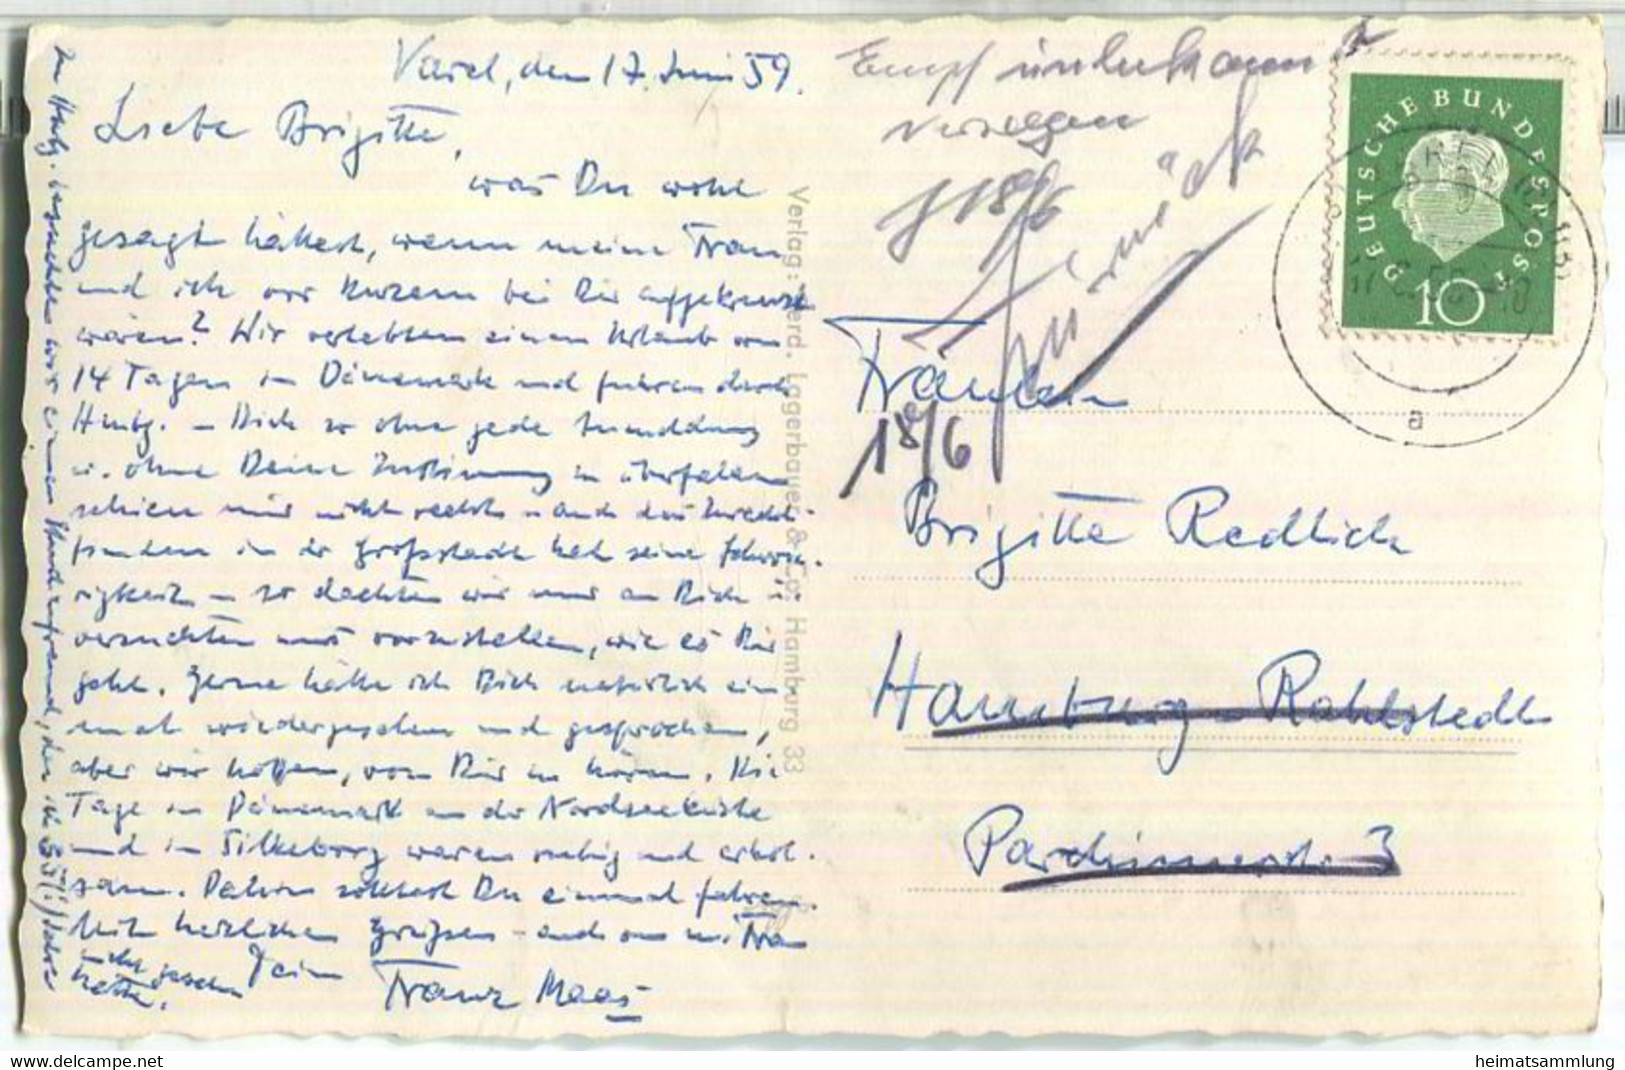 Varel, den 17. Juni 59.
Liebe Brigitte,
was Du wohl
gesagt hättest, wenn meine Frau
und ich vor kurzem bei Dir aufgekreuzt
wären? Wir verlebten einen Urlaub von
14 Tagen in Dänemark und fuhren durch
Hmbg. - Dich so ohne jede Anmeldung
u. ohne Deine Zustimmung zu überfallen
schien mir nicht recht - auch das Zurecht-
finden in der Großstadt hat seine Schwie-
rigkeit - so dachten wir nur an Dich u.
versuchten uns vorzustellen, wie es Dir
geht. Gerne hätte ich Dich natürlich ein-
mal wiedergesehen und gesprochen,
aber wir hoffen, von Dir zu hören. Die
Tage in Dänemark an der Nordseeküste
und in Silkeborg waren ruhig und erhol-
sam. Dahin solltest Du einmal fahren.
Mit herzlichen Grüßen - auch von m. Frau
Dein
Franz Maas
In Hmbg. besuchten wir einen Studienfreund, den ich 35 (!) Jahre
nicht gesehen
hatte.
Verlag: Ferd. Lagerbauer & Co. Hamburg 33
Empf unbekannt
verzogen
18/6
zurück
DEUTSCHE BUNDESPOST
10
a
Fräulein
18/6
Brigitte Redlich
Hamburg-Rahlstedt
Parchimerstr. 3
heimatsammlung
delcampe.net